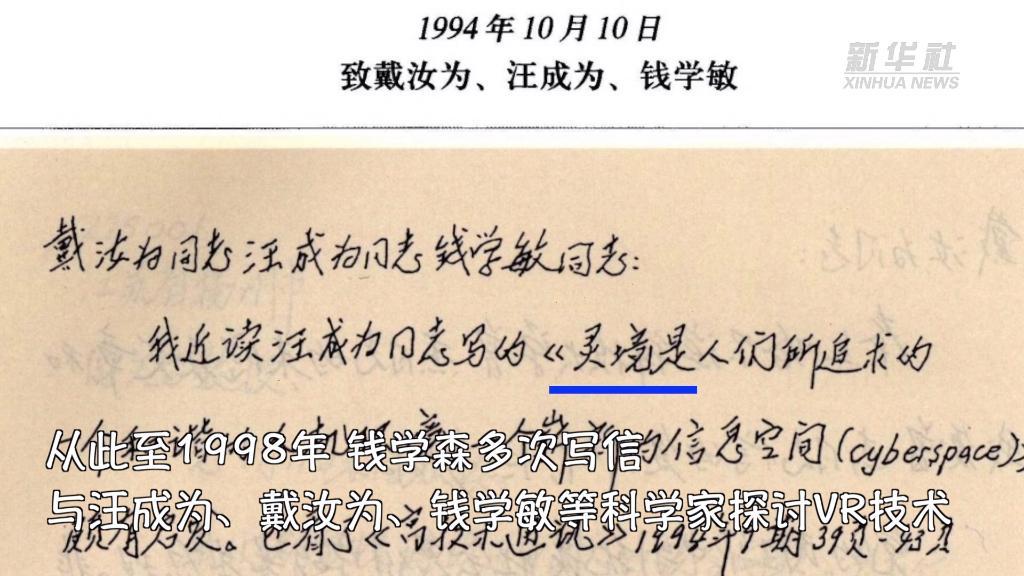 1994年10月10日
致戴汝为、汪成为、钱学敏
新华社
XINHUA NEWS
戴汝为同志汪成为同志钱学敏同志:
我近读汪成为同志写的《灵境是人们所追求的
信息空间(cyberspace)》
从此至1998年 钱学森多次写信
与汪成为、戴汝为、钱学敏等科学家探讨VR技术
颇有启发。也看了《高技术通讯》1994年9期39页-43页